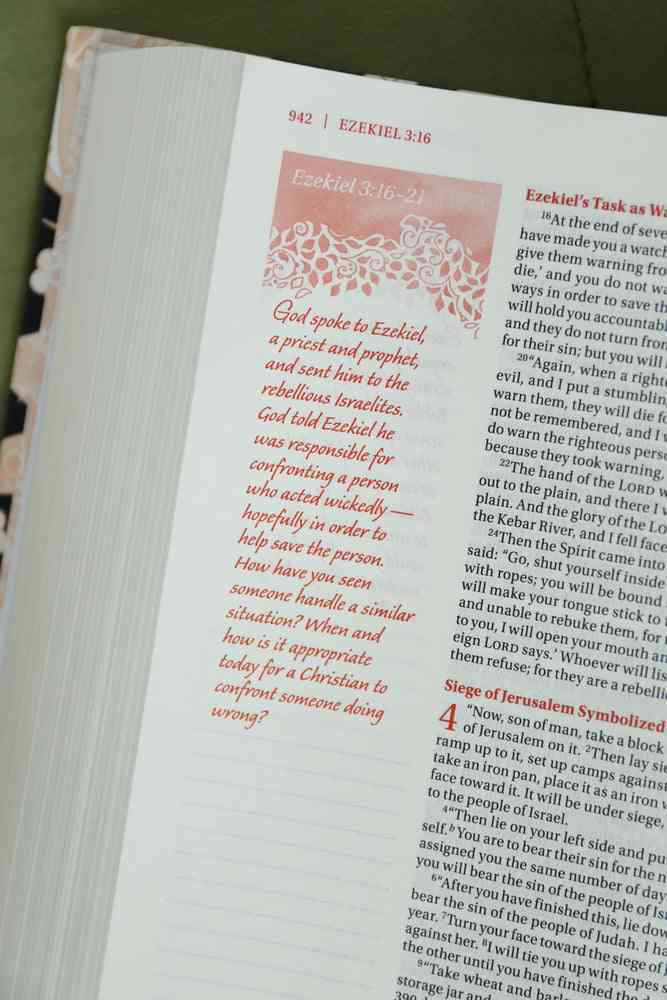 942 | EZEKIEL 3:16
Ezekiel 3:16–21
God spoke to Ezekiel,
a priest and prophet,
and sent him to the
rebellious Israelites.
God told Ezekiel he
was responsible for
confronting a person
who acted wickedly —
hopefully in order to
help save the person.
How have you seen
someone handle a similar
situation? When and
how is it appropriate
today for a Christian to
confront someone doing
wrong?
Ezekiel's Task as
16"At the end of
have made you a
give them warning
die,' and you do not
ways in order to save
will hold you
and they do not turn
for their sin; but you will
20"Again, when a
evil, and I put a
warn them, they will die
not be remembered, and I
do warn the righteous
because they took warning,
22The hand of the LORD
out to the plain, and there I
plain. And the glory of the
the Kebar River, and I fell
24Then the Spirit came into
said: "Go, shut yourself inside
with ropes; you will be bound
will make your tongue stick to
and unable to rebuke them, for
to you, I will open your mouth
eign LORD says.' Whoever will
them refuse; for they are a
Siege of Jerusalem Symbolized
4 "Now, son of man, take a block
of Jerusalem on it. 2Then lay
ramp up to it, set up camps against
take an iron pan, place it as an iron
face toward it. It will be under siege,
to the people of Israel.
4"Then lie on your left side and
self.b You are to bear their sin for the
assigned you the same number of
you will bear the sin of the people of
6"After you have finished this, lie
bear the sin of the people of Judah. I
year. 7Turn your face toward the siege of
against her. 8I will tie you up with ropes
the other until you have finished the
9"Take wheat and
storage jar and
390